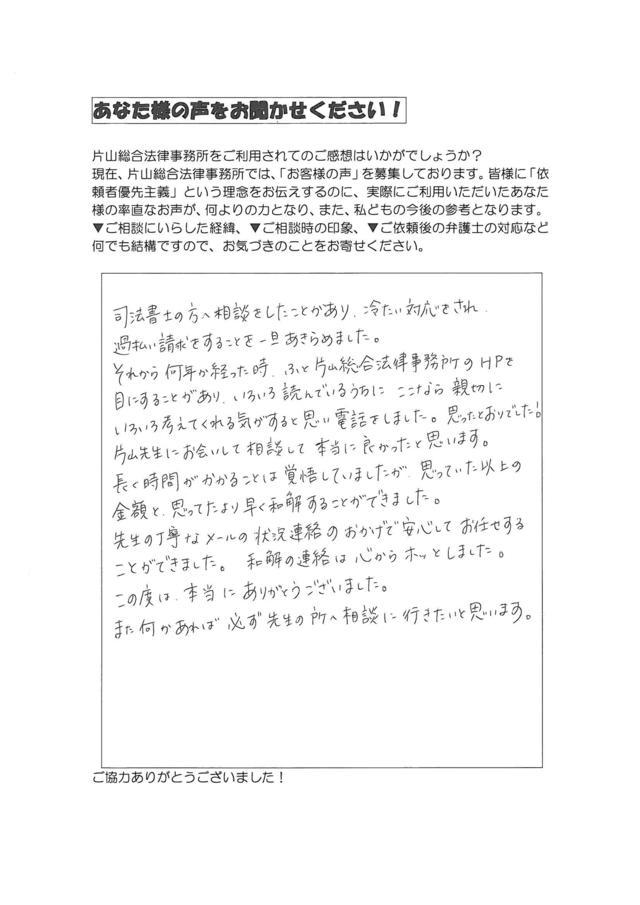 あなた様の声をお聞かせください！
片山総合法律事務所をご利用されてのご感想はいかがでしょうか？
現在、片山総合法律事務所では、「お客様の声」を募集しております。皆様に「依
頼者優先主義」という理念をお伝えするのに、実際にご利用いただいたあなた
様の率直なお声が、何よりの力となり、また、私どもの今後の参考となります。
▼ご相談にいらした経緯、▼ご相談時の印象、▼ご依頼後の弁護士の対応など
何でも結構ですので、お気づきのことをお寄せください。
司法書士の方へ相談をしたことがあり、冷たい対応をされ、
過払い請求をすることを一旦あきらめました。
それから何年か経った時、ふと片山総合法律事務所のHPを
目にすることがあり、いろいろ読んでいるうちに ここなら 親切に
いろいろ考えてくれる気がすると思い電話をしました。思ったとおりでした！
片山先生にお会いして相談して 本当に良かったと思います。
長く時間がかかることは覚悟していましたが、思っていた以上の
金額と、思ってたより早く和解することができました。
先生の丁寧なメールの状況連絡のおかげで安心してお任せする
ことができました。 和解の連絡は心からホッとしました。
この度は、本当にありがとうございました。
また何かあれば 必ず先生の所へ相談に行きたいと思います。
ご協力ありがとうございました！